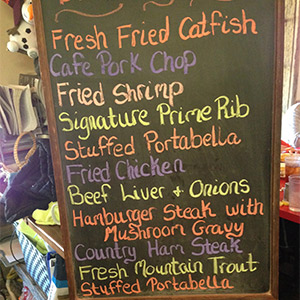 Fresh Fried Catfish
Cafe Pork Chop
Fried Shrimp
Signature Prime Rib
Stuffed Portabella
Fried Chicken
Beef Liver + Onions
Hamburger Steak with
Mushroom Gravy
Country Ham Steak
Fresh Mountain Trout
Stuffed Portabella